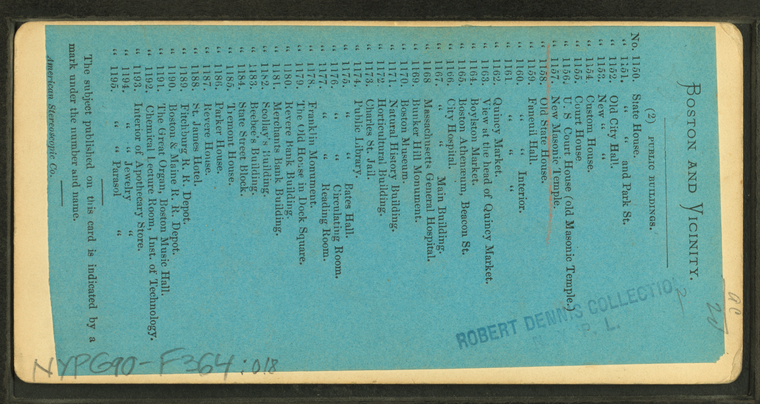 BOSTON AND VICINITY.
(2) PUBLIC BUILDINGS.
No. 1150. State House.
" 1151. " " and Park St.
" 1152. Old City Hall.
" 1153. New " "
" 1154. Custom House.
" 1155. Court House.
" 1156. U. S. Court House (old Masonic Temple.)
" 1157. New Masonic Temple.
" 1158. Old State House.
" 1159. Faneuil Hall.
" 1160. " " Interior.
" 1161. " "
" 1162. Quincy Market.
" 1163. View at the head of Quincy Market.
" 1164. Boylston Market.
" 1165. Boston Athenæum, Beacon St.
" 1166. City Hospital.
" 1167. " " Main Building.
" 1168. Massachusetts General Hospital.
" 1169. Bunker Hill Monument.
" 1170. Boston Museum.
" 1171. Natural History Building.
" 1172. Horticultural Building.
" 1173. Charles St. Jail.
" 1174. Public Library.
" 1175. " " Bates Hall.
" 1176. " " Circulating Room.
" 1177. " " Reading Room.
" 1178. Franklin Monument.
" 1179. The Old House in Dock Square.
" 1180. Revere Bank Building.
" 1181. Merchants Bank Building.
" 1182. Scollay's Building.
" 1183. Beebee's Building.
" 1184. State Street Block.
" 1185. Tremont House.
" 1186. Parker House.
" 1187. Revere House.
" 1188. St. James Hotel.
" 1189. Fitchburg R. R. Depot.
" 1190. Boston & Maine R. R. Depot.
" 1191. The Great Organ, Boston Music Hall.
" 1192. Chemical Lecture Room, Inst. of Technology.
" 1193. Interior of Apothecary Store.
" 1194. " " Jewelry "
" 1195. " " Parasol "
The subject published on this card is indicated by a
mark under the number and name.
American Stereoscopic Co.
ROBERT DENNIS COLLECTION
N. Y. P. L.
NYPG90-F364:018